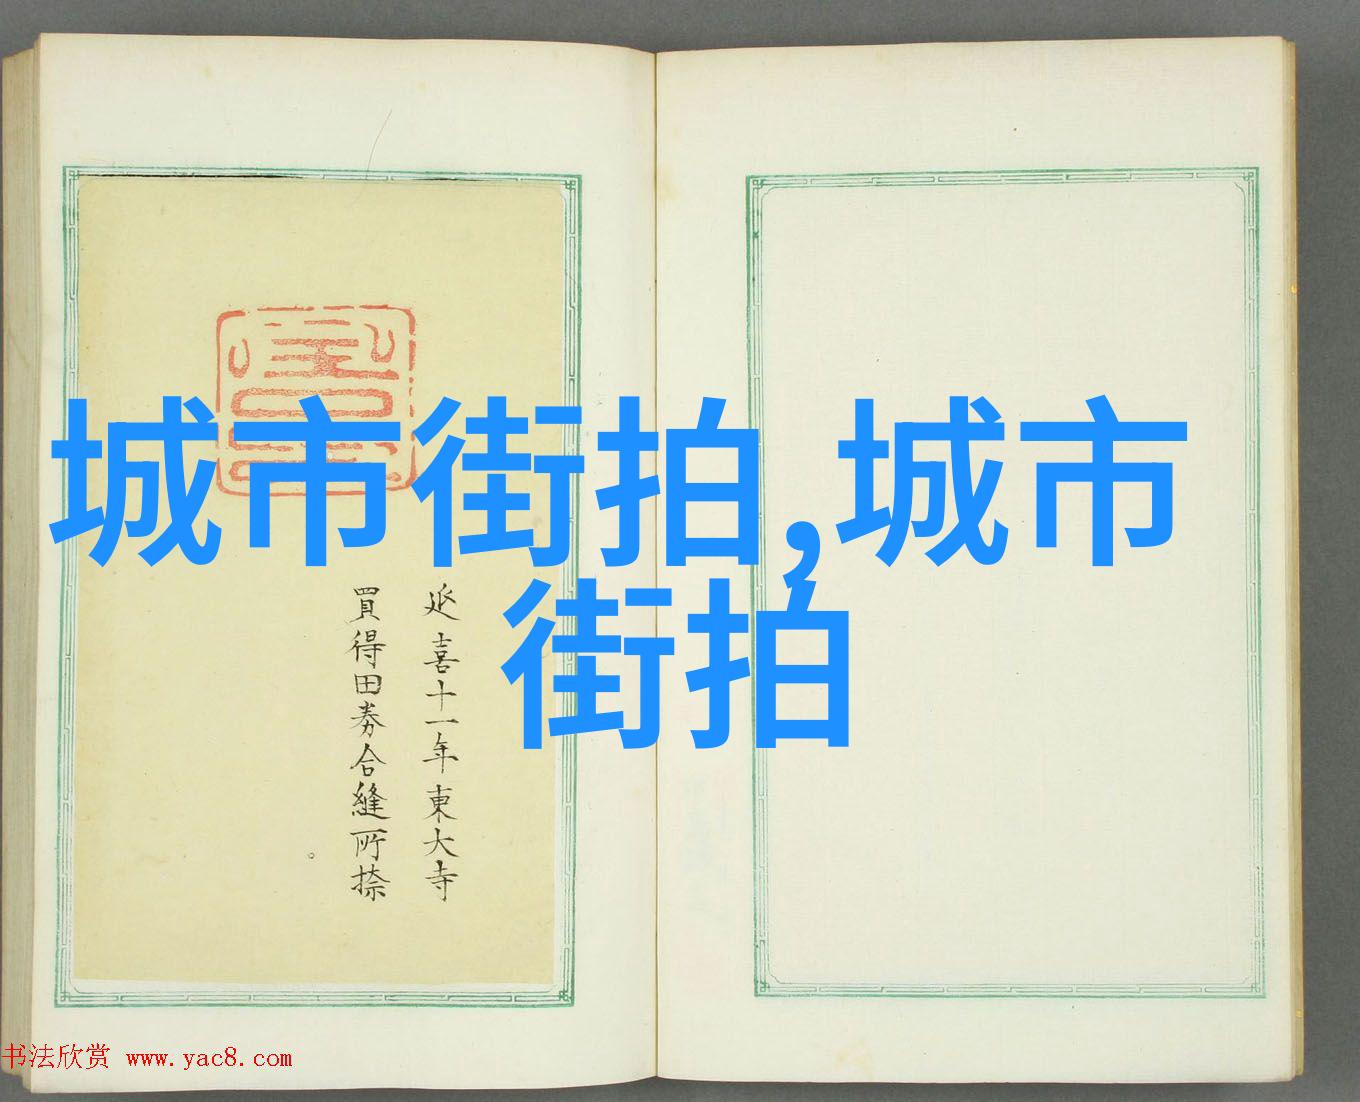 城市街拍,城市
街拍
延喜十一年東大寺
買得田券合縫所捺
书法欣赏 www.yac8.com